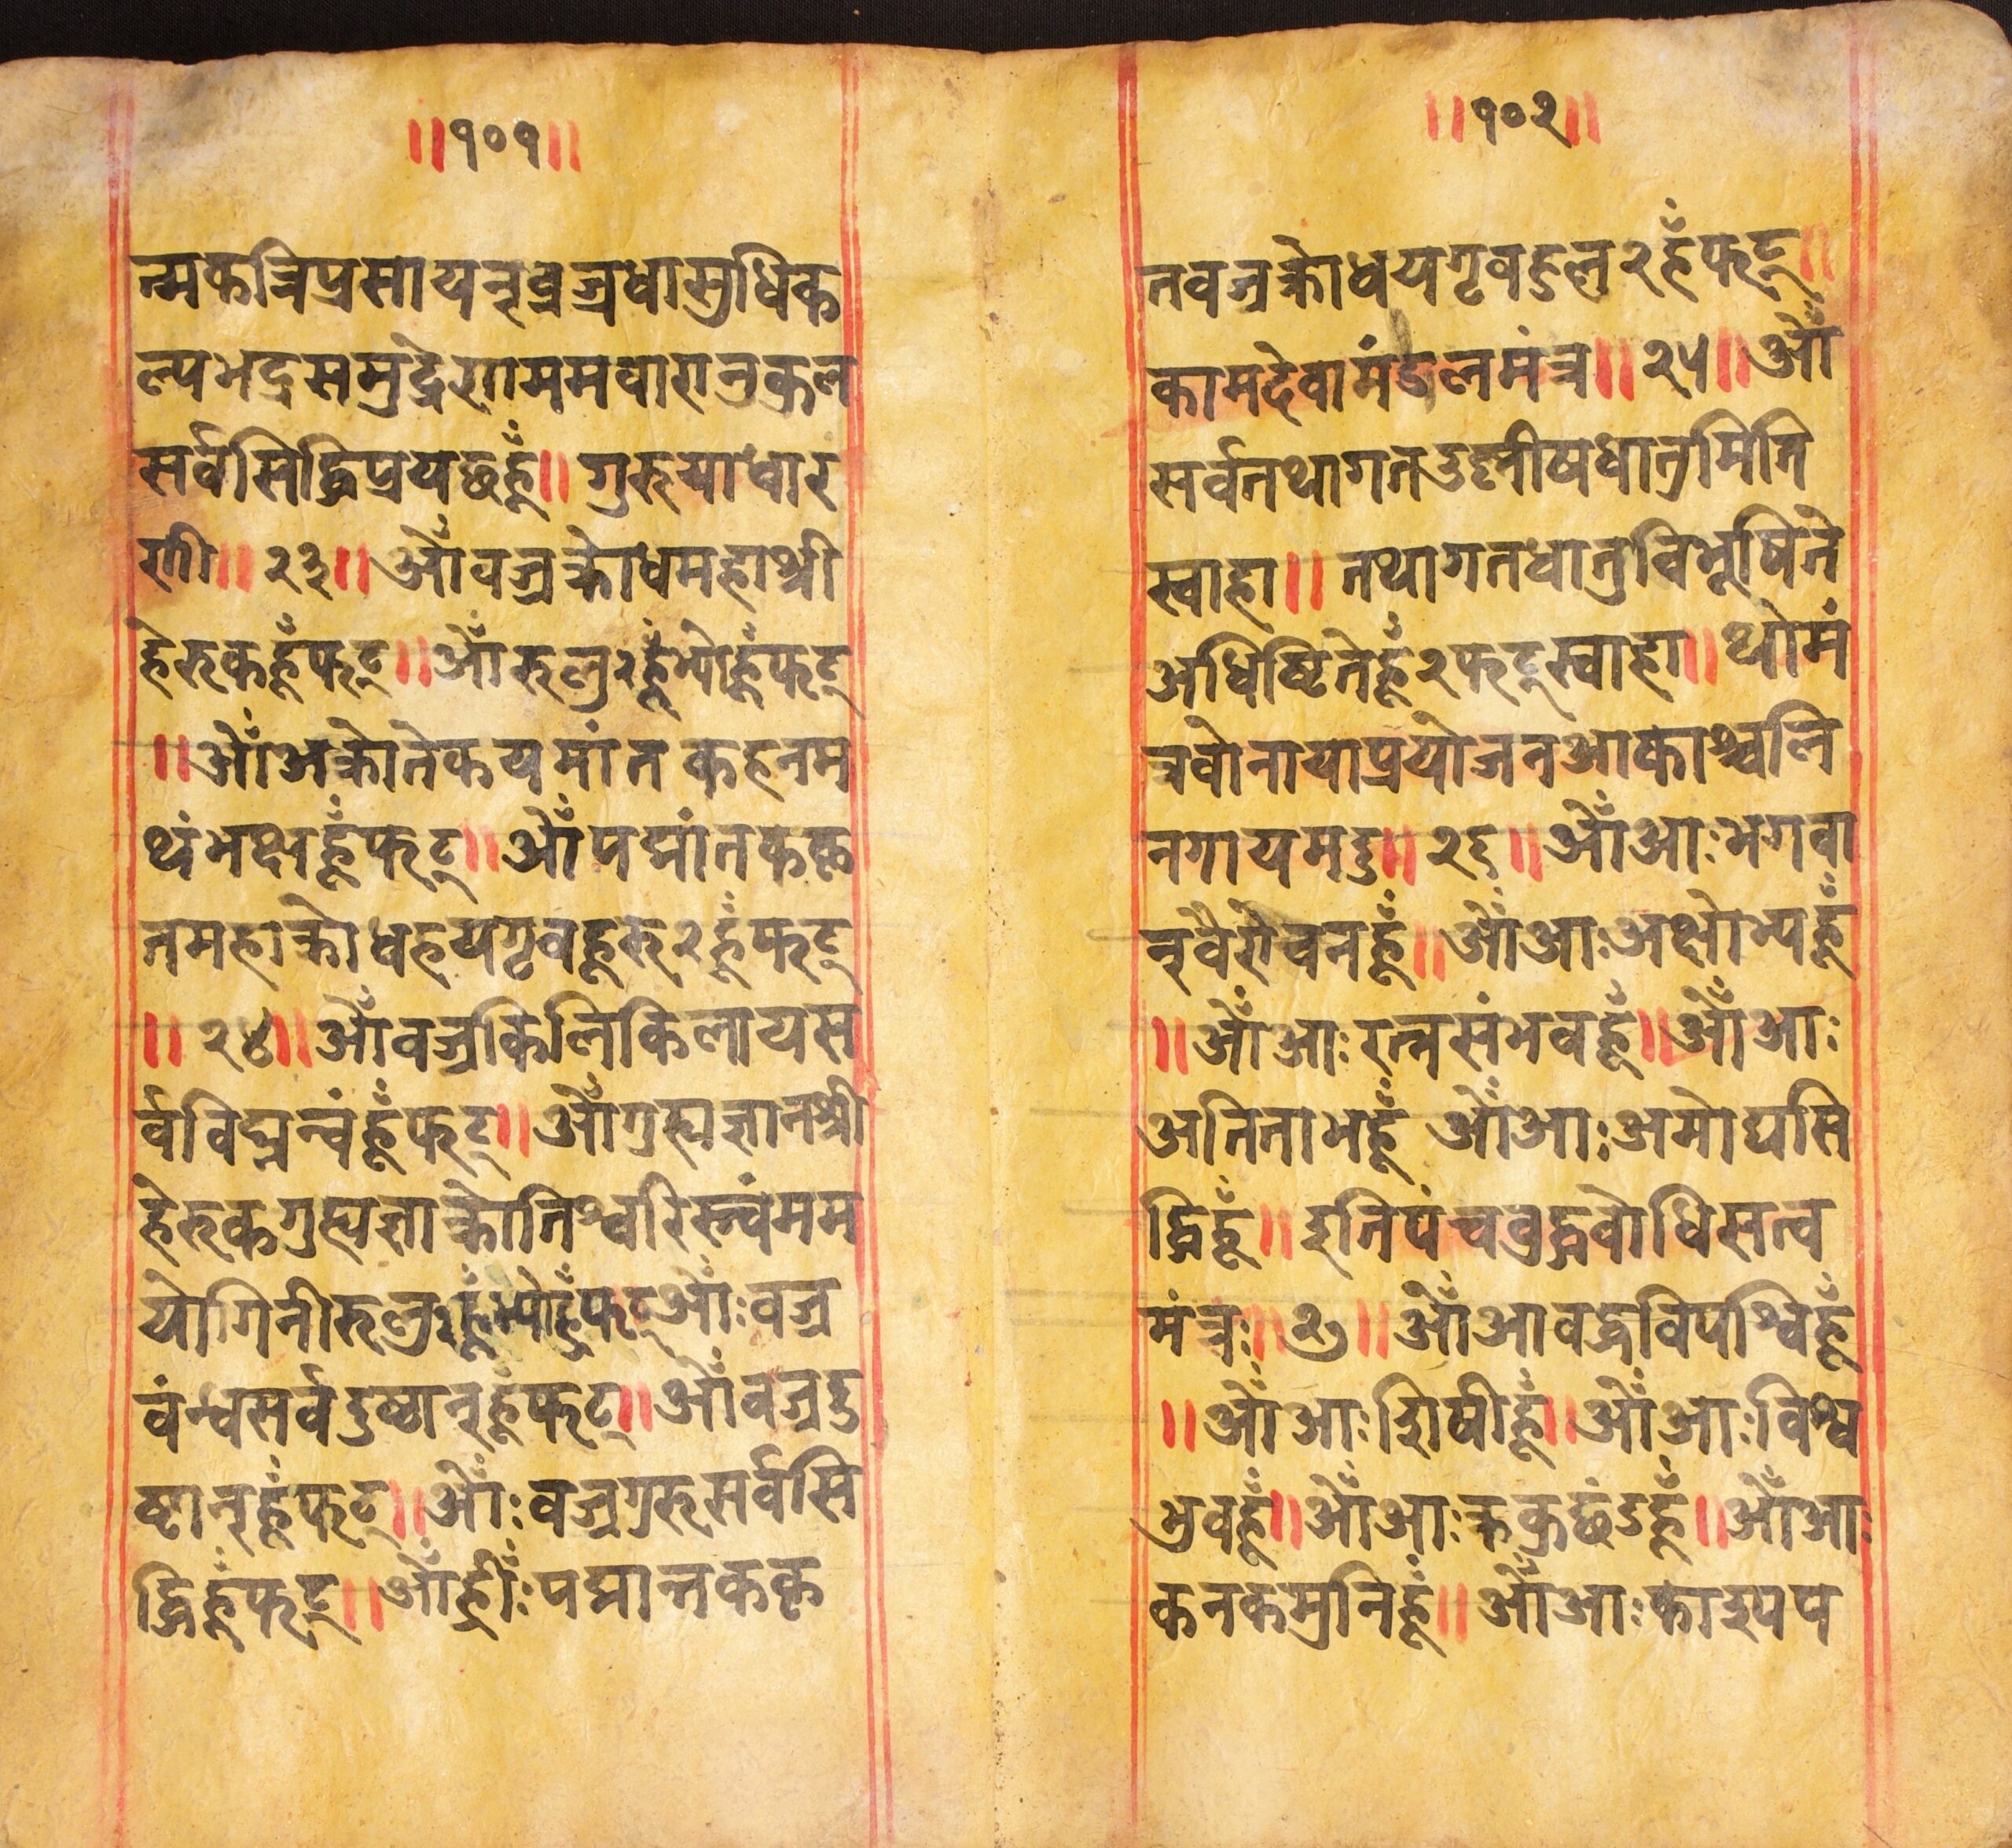 ॥१०१॥
न्मकत्रिप्रसायनृवज्रधामुधिक
ल्पभद्रसमुद्रेराामममवारानुक्रल
सर्वसिद्धिप्रयछहूँ॥ गुरुयाधार
राी॥ २३॥ ओँवज्रक्रोधमहाश्री
हेरुकहूँफट्॥ओँरुलु२हूँभ्योहूँफट्
॥ओँअक्रोतेकयमांत कहनम
थंभक्षहूँफट्॥ ओँपद्मांतककृ
तमहाक्रोधहयगृवहूरु२हूँफट्
॥ २४॥ओँवज्रकिलिकिलायस
र्वविघ्नन्वंहूँफट्॥ओँगुह्यज्ञानश्री
हेरुकगुह्यज्ञाक्रोतिश्वरिस्त्वंमम
योगिनीरुलुः हूँभ्योहूँफट्ओँः वज्र
वंन्धसर्वदुष्ठान्हूँफट्॥ओँवज्रदु
ष्टान्हूँफट्॥ओँः वज्रगुरुसर्वसि
द्धिहूँफट्॥ओँह्रीँः पद्मान्तककृ
॥१०२॥
तवज्रक्रोधयगृवहुलु२हूँफट्॥
कामदेवामंडलमंत्र॥ २५॥ ओँ
सर्वतथागतउष्नीषधातुमिति
स्वाहा॥ तथागतधातुविभूषिते
अधिष्टितेहूँ२फट्स्वाहा॥ थोमं
त्रवोनायाप्रयोजनआकाश्वलि
नगायमदु॥ २६॥ ओँआःभगवा
न्वैरोचनहूँ॥ ओँआःअक्षोभ्यहूँ
॥ओँआः रत्नसंभवहूँ॥ओँआः
अतिताभहूँ ओँआः अमोघसि
द्धिहूँ॥ इतिपंचबुद्धवोधिसत्व
मंत्रः॥ २७॥ ओँआवद्धविपश्विहूँ
॥ओँआः शिषीहूँ॥ओँआः विश्व
भ्रुवहूँ॥ओँआः क्रक्रछंडहूँ॥ओँआः
कनकमुनिहूँ॥ ओँआः काइपप